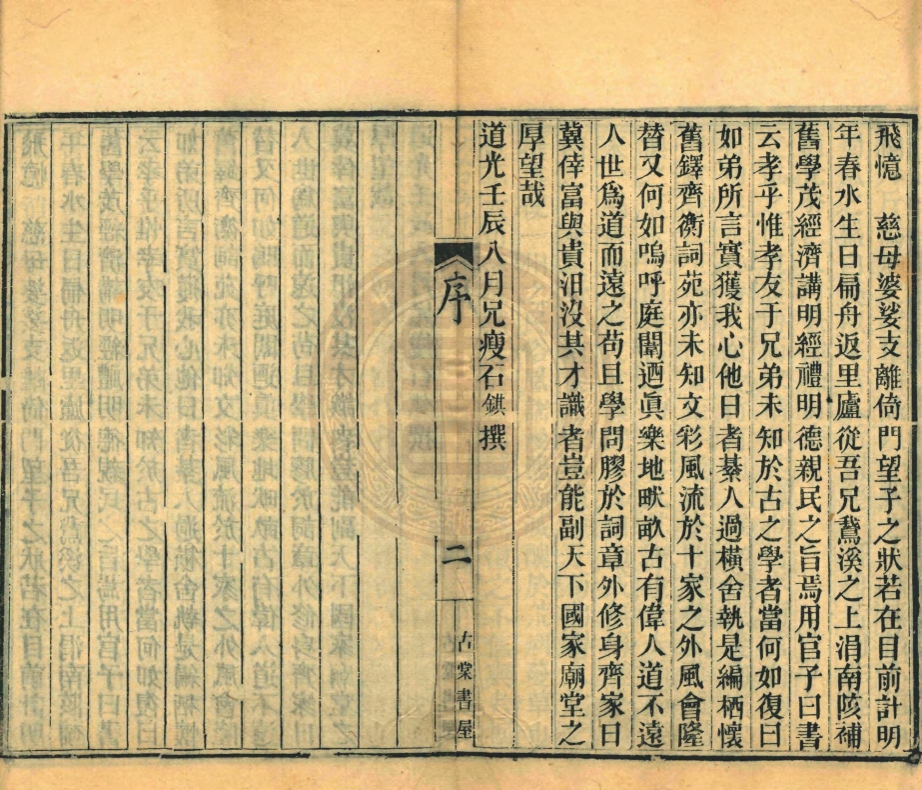 飛憶　慈母婆娑支離倚門望子之狀若在目前計明
年春水生日扁舟返里廬從吾兄鵞溪之上涓南陔補
舊學茂經濟講明經禮明德親民之旨焉用官子曰書
云孝乎惟孝友于兄弟未知於古之學者當何如復曰
如弟所言實獲我心他日者綦人過橫舍執是編栖懷
舊鐸齊衡詞苑亦未知文彩風流於十家之外風會隆
替又何如嗚呼庭闈迺眞樂地畎畝古有偉人道不遠
人世爲道而遠之苟且學問膠於詞章外修身齊家日
冀倖富與貴汨沒其才識者豈能副天下國家廟堂之
厚望哉
道光壬辰八月兄瘦石錤撰
序
二
占棠書屋